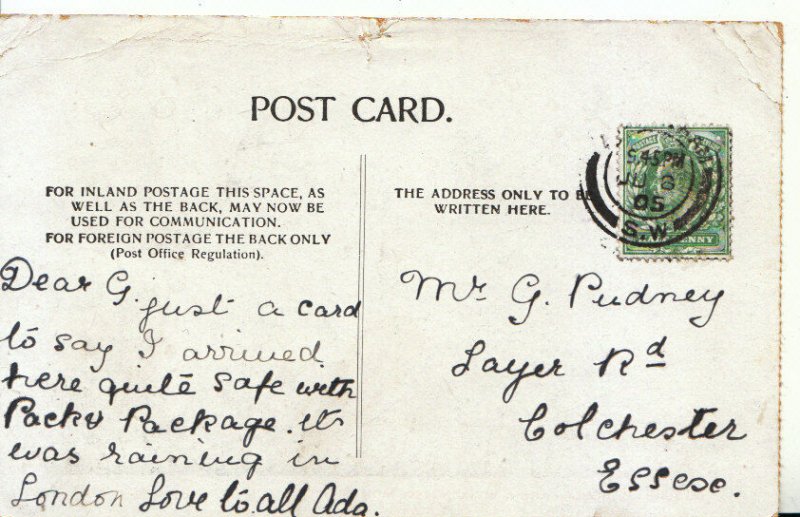 POST CARD.
FOR INLAND POSTAGE THIS SPACE, AS
WELL AS THE BACK, MAY NOW BE
USED FOR COMMUNICATION.
FOR FOREIGN POSTAGE THE BACK ONLY
(Post Office Regulation).
Dear G. just a card
to say I arrived
here quite safe with
Pack & Package. it
was raining in
London Love to all Ada.
THE ADDRESS ONLY TO BE
WRITTEN HERE.
5.45PM
JU 8
05
S.W
PENNY
Mr G. Pudney
Layer Rd
Colchester
Essex.